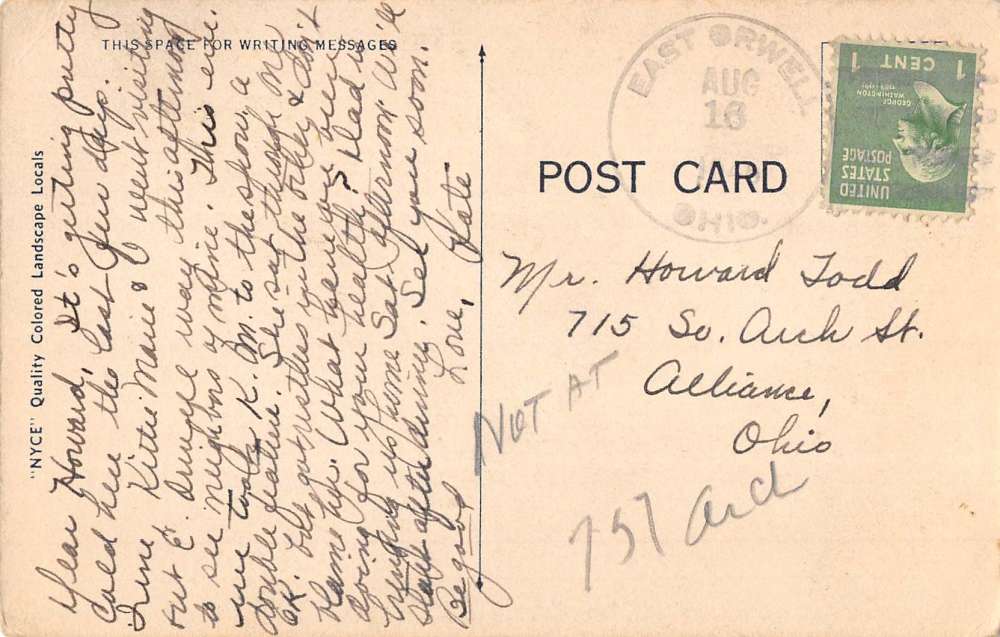 THIS SPACE FOR WRITING MESSAGES
"NYCE" Quality Colored Landscape Locals
Dear Howard, It's getting pretty
cold here the last few days.
Irene Kittie Marie & I went visiting
out E. way this afternoon
to see neighbors of mine. This eve.
we took K. M. to the show, a
double feature. She sat through one
OK. but got restless with the other & don't
blame her. What have you been
doing for your health? Dad is
bringing us home Sat. afternoon. We'll
start after dinner. See you soon.
Love,
Kate
POST CARD
EAST ORWELL
AUG
16
OHIO.
1 CENT 1
GEORGE
WASHINGTON
UNITED
STATES
POSTAGE
Mr. Howard Todd
715 So. Arch St.
Alliance,
Ohio
NOT AT
757 Arch